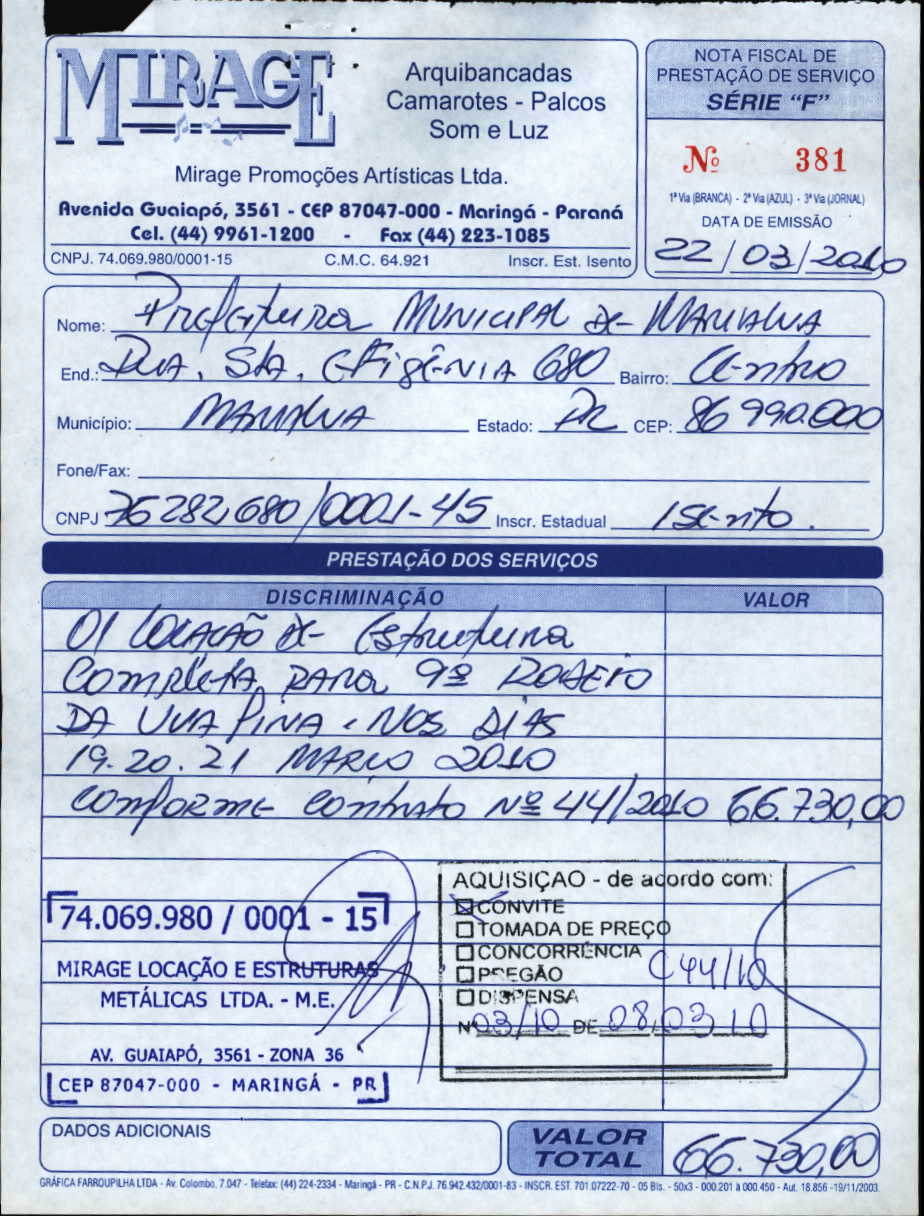 MIRAGE
Arquibancadas
Camarotes - Palcos
Som e Luz
Mirage Promoções Artísticas Ltda.
Avenida Guaiapó, 3561 - CEP 87047-000 - Maringá - Paraná
Cel. (44) 9961-1200 - Fax (44) 223-1085
CNPJ. 74.069.980/0001-15 C.M.C. 64.921 Inscr. Est. Isento
NOTA FISCAL DE
PRESTAÇÃO DE SERVIÇO
SÉRIE "F"
Nº 381
1ª Via (BRANCA) - 2ª Via (AZUL) - 3ª Via (JORNAL)
DATA DE EMISSÃO
22/03/2010
Nome: Prefeitura Municipal de Marialva
End.: Rua. Sta. Efigênia 680 Bairro: Centro
Município: Marialva Estado: Pr CEP: 86990.000
Fone/Fax:
CNPJ 76282680/0001-45 Inscr. Estadual Isento.
PRESTAÇÃO DOS SERVIÇOS
DISCRIMINAÇÃO VALOR
01 Locação de Estrutura
Completa para 9º Rodeio
da Uva Fina. nos dias
19.20.21 Março 2010
conforme contrato Nº 44/2010 66.730,00
74.069.980 / 0001 - 15
MIRAGE LOCAÇÃO E ESTRUTURAS
METÁLICAS LTDA. - M.E.
AV. GUAIAPÓ, 3561 - ZONA 36
CEP 87047-000 - MARINGÁ - PR
AQUISIÇAO - de acordo com:
CONVITE
TOMADA DE PREÇO
CONCORRÊNCIA
PREGÃO C44/10
DISPENSA
Nº 03/10 DE 08/03/10
DADOS ADICIONAIS
VALOR
TOTAL 66.730,00
GRÁFICA FARROUPILHA LTDA - Av. Colombo, 7.047 - Telefax: (44) 224-2334 - Maringá - PR - C.N.P.J. 76.942.432/0001-83 - INSCR. EST. 701.07222-70 - 05 Bls. - 50x3 - 000.201 à 000.450 - Aut. 18.856 -19/11/2003.